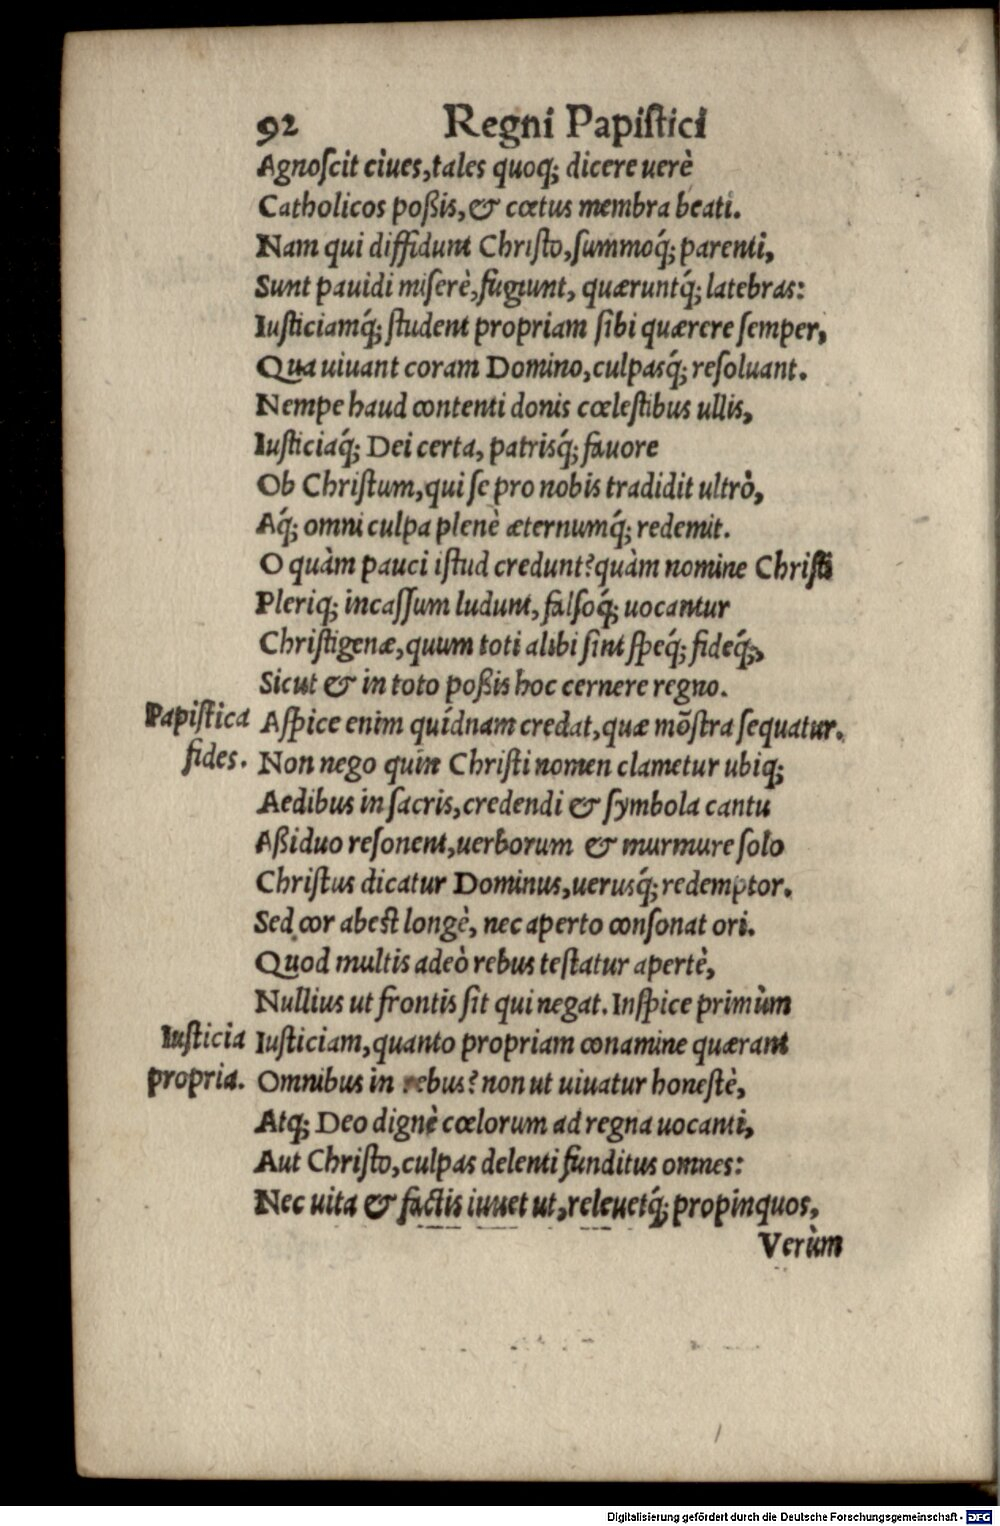 92 Regni Papiſtici
Agnoſcit ciues, tales quoq; dicere uerè
Catholicos poßis, & cœtus membra beati.
Nam qui diffidunt Chriſto, ſummoq́; parenti,
Sunt pauidi miſerè, fugiunt, quæruntq́; latebras:
Iuſticiamq́; ſtudent propriam ſibi quærere ſemper,
Qua uiuant coram Domino, culpasq́; reſoluant.
Nempe haud contenti donis cœleſtibus ullis,
Iuſticiaq́; Dei certa, patrisq́; fauore
Ob Chriſtum, qui ſe pro nobis tradidit ultrò,
Aq́; omni culpa plenè æternumq́; redemit.
O quàm pauci iſtud credunt? quàm nomine Chriſti
Pleriq; incaſſum ludunt, falſoq́; uocantur
Chriſtigenæ, quum toti alibi ſint ſpeq́; fideq́;,
Sicut & in toto poßis hoc cernere regno.
Papiſtica Aſpice enim quídnam credat, quæ mõſtra ſequatur.
fides. Non nego quin Chriſti nomen clametur ubiq;
Aedibus in ſacris, credendi & ſymbola cantu
Aßiduo reſonent, uerborum & murmure ſolo
Chriſtus dicatur Dominus, uerusq́; redemptor.
Sed cor abeſt longè, nec aperto conſonat ori.
Quod multis adeò rebus teſtatur apertè,
Nullius ut frontis ſit qui negat. Inſpice primùm
Iuſticia Iuſticiam, quanto propriam conamine quærant
propria. Omnibus in rebus? non ut uiuatur honeſtè,
Atq; Deo dignè cœlorum ad regna uocanti,
Aut Chriſto, culpas delenti funditus omnes:
Nec uita & factis iuuet ut, releuetq́; propinquos,
Verùm
Digitalisierung gefördert durch die Deutsche Forschungsgemeinschaft - DFG